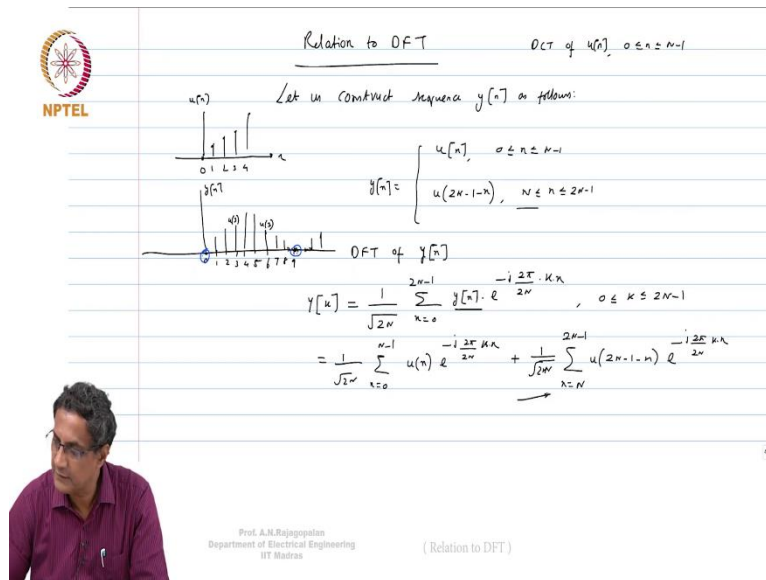 Relation to DFT
DCT of u[n], 0 ≤ n ≤ N-1
NPTEL
Let us construct sequence y[n] as follows:
u[n]
0 1 2 3 4 n
y[n] = { u[n], 0 ≤ n ≤ N-1
u(2N-1-n), N ≤ n ≤ 2N-1
y[n]
u(3) u(3)
0 1 2 3 4 5 6 7 8 9
DFT of y[n]
Y[k] = 1/√2N ∑_{n=0}^{2N-1} y[n] · e^{-i 2π/2N · k·n}, 0 ≤ k ≤ 2N-1
= 1/√2N ∑_{n=0}^{N-1} u(n) e^{-i 2π/2N kn} + 1/√2N ∑_{n=N}^{2N-1} u(2N-1-n) e^{-i 2π/2N k·n}
Prof. A.N.Rajagopalan
Department of Electrical Engineering
IIT Madras
( Relation to DFT )